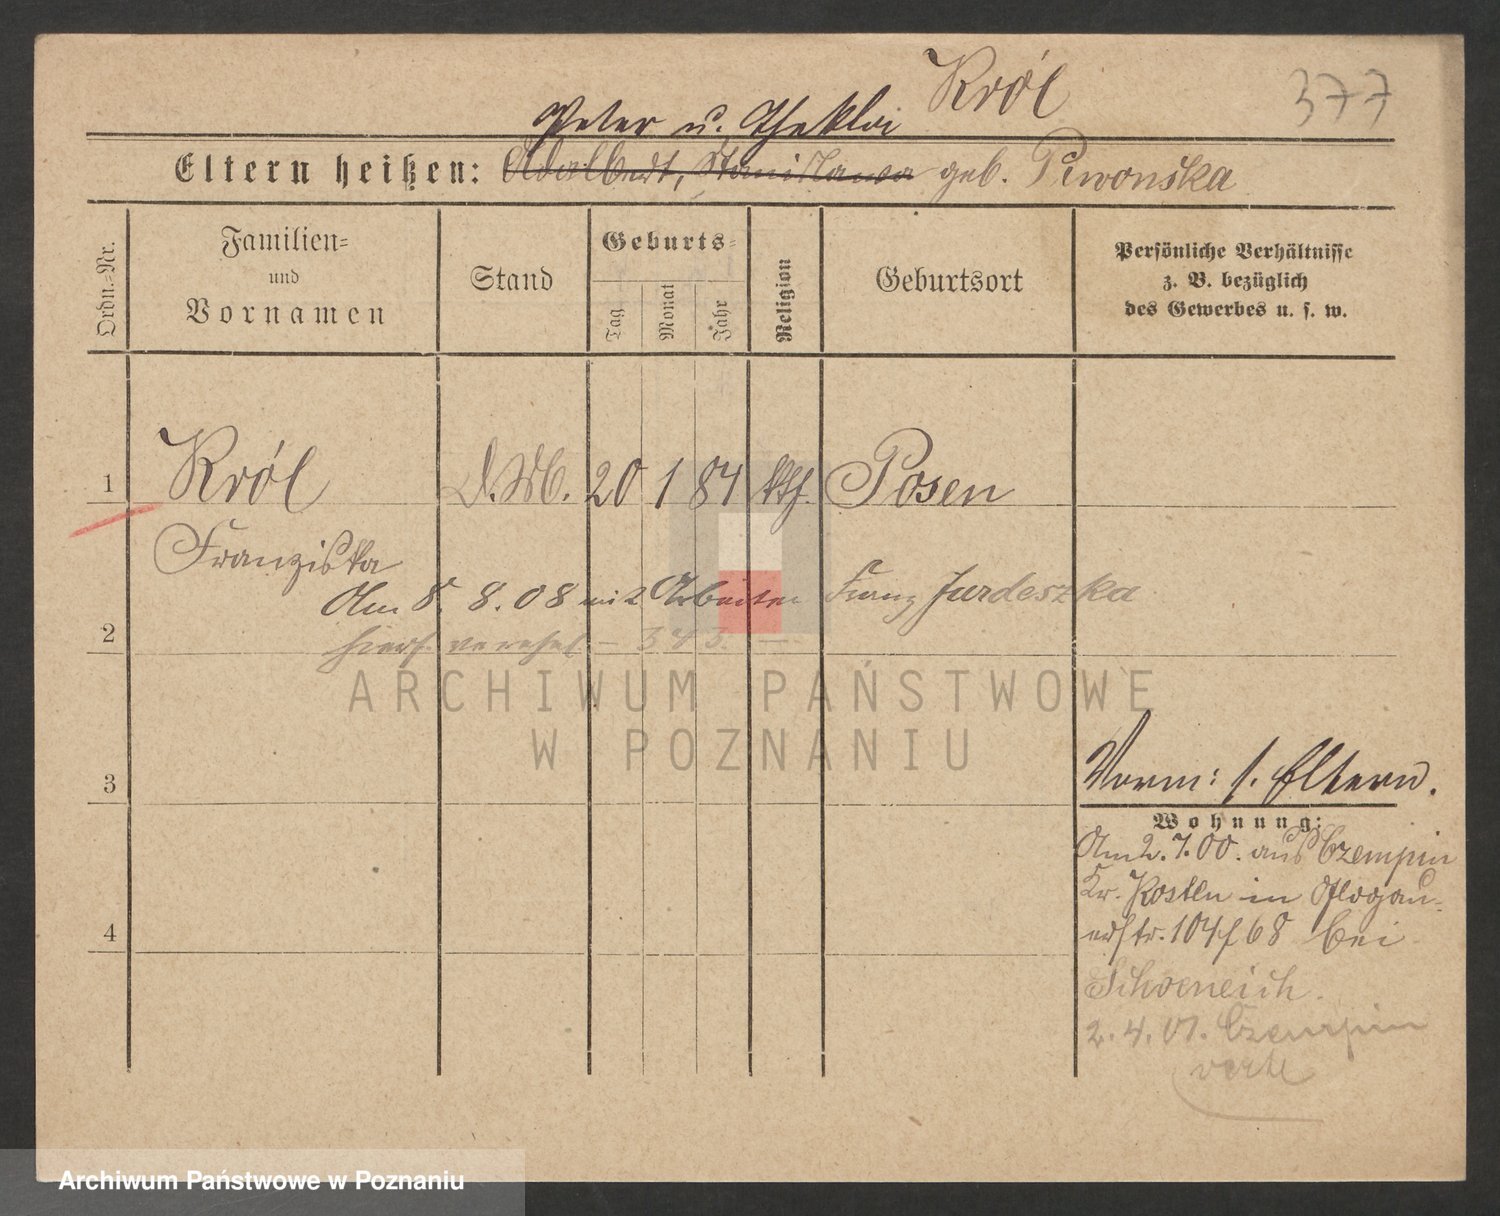 Król
377
Peter u. Thekla
Eltern heißen: Adalbert, Stanislawa geb. Piwonska
Ordn.-Nr.
Familien-
und
Vornamen
Stand
Geburts-
Tag
Monat
Jahr
Religion
Geburtsort
Persönliche Verhältnisse
z. B. bezüglich
des Gewerbes u. s. w.
1 Król D.M. 20 1 84 kth. Posen
Franziska
Am 8. 8. 08 mit Arbeiter Franz Jurdeszka
2 hiers. verehel – 343. –
ARCHIWUM PAŃSTWOWE
W POZNANIU
3
Vorm: s. Eltern.
Wohnung:
Am 2. 7. 00. aus Czempin
Kr. Kosten in Glogau-
erstr. 104/68 bei
4
Schoeneich.
2. 4. 01. Czempin
verte
Archiwum Państwowe w Poznaniu